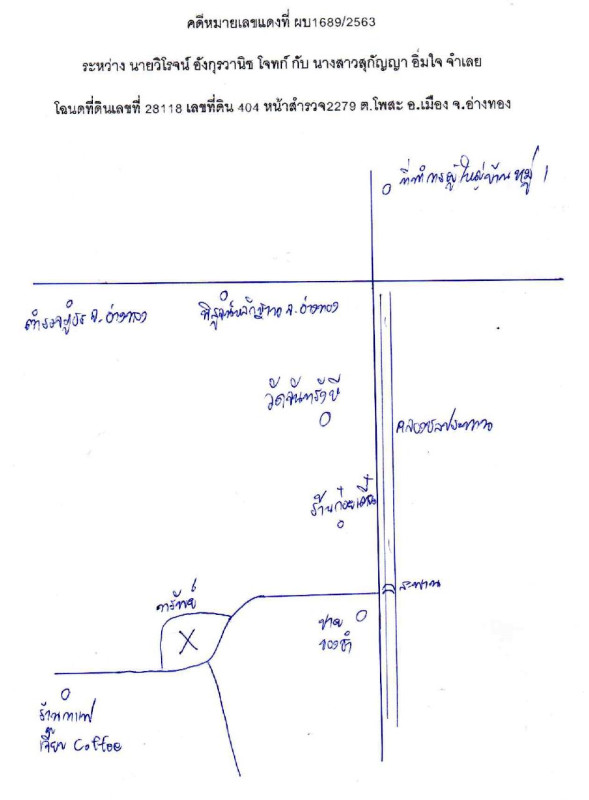 คดีหมายเลขแดงที่ ผบ1689/2563
ระหว่าง นายวิโรจน์ อังกุรวานิช โจทก์ กับ นางสาวสุกัญญา อิ่มใจ จำเลย
โฉนดที่ดินเลขที่ 28118 เลขที่ดิน 404 หน้าสำรวจ2279 ต.โพสะ อ.เมือง จ.อ่างทอง
ที่ทำการผู้ใหญ่บ้าน หมู่ 1
ตำรวจภูธร จ.อ่างทอง
พิสูจน์หลักฐาน จ.อ่างทอง
วัดจันทรังษี
คลองชลประทาน
ร้านก๋วยเตี๋ยว
สะพาน
ทรัพย์
X
ขาย
ของชำ
ร้านกาแฟ
เจี๊ยบ Coffee